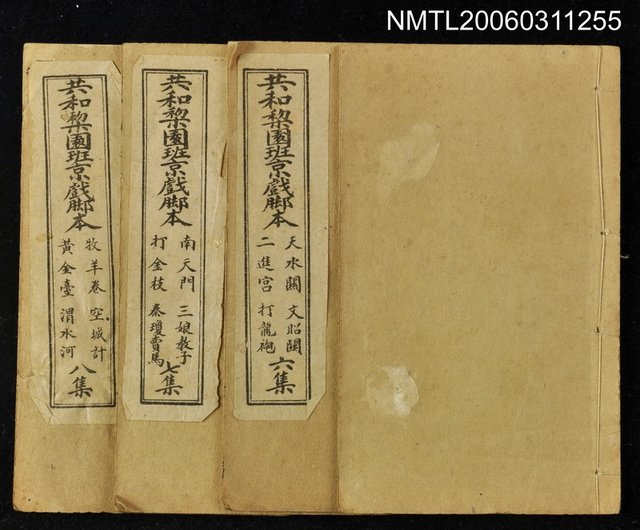 NMTL20060311255
共和黎園班京戲脚本
天水關 文昭關
二進宮 打龍袍
六集
共和黎園班京戲脚本
南天門 三娘教子
打金枝 秦瓊賣馬
七集
共和黎園班京戲脚本
牧羊卷 空城計
黃金臺 渭水河
八集